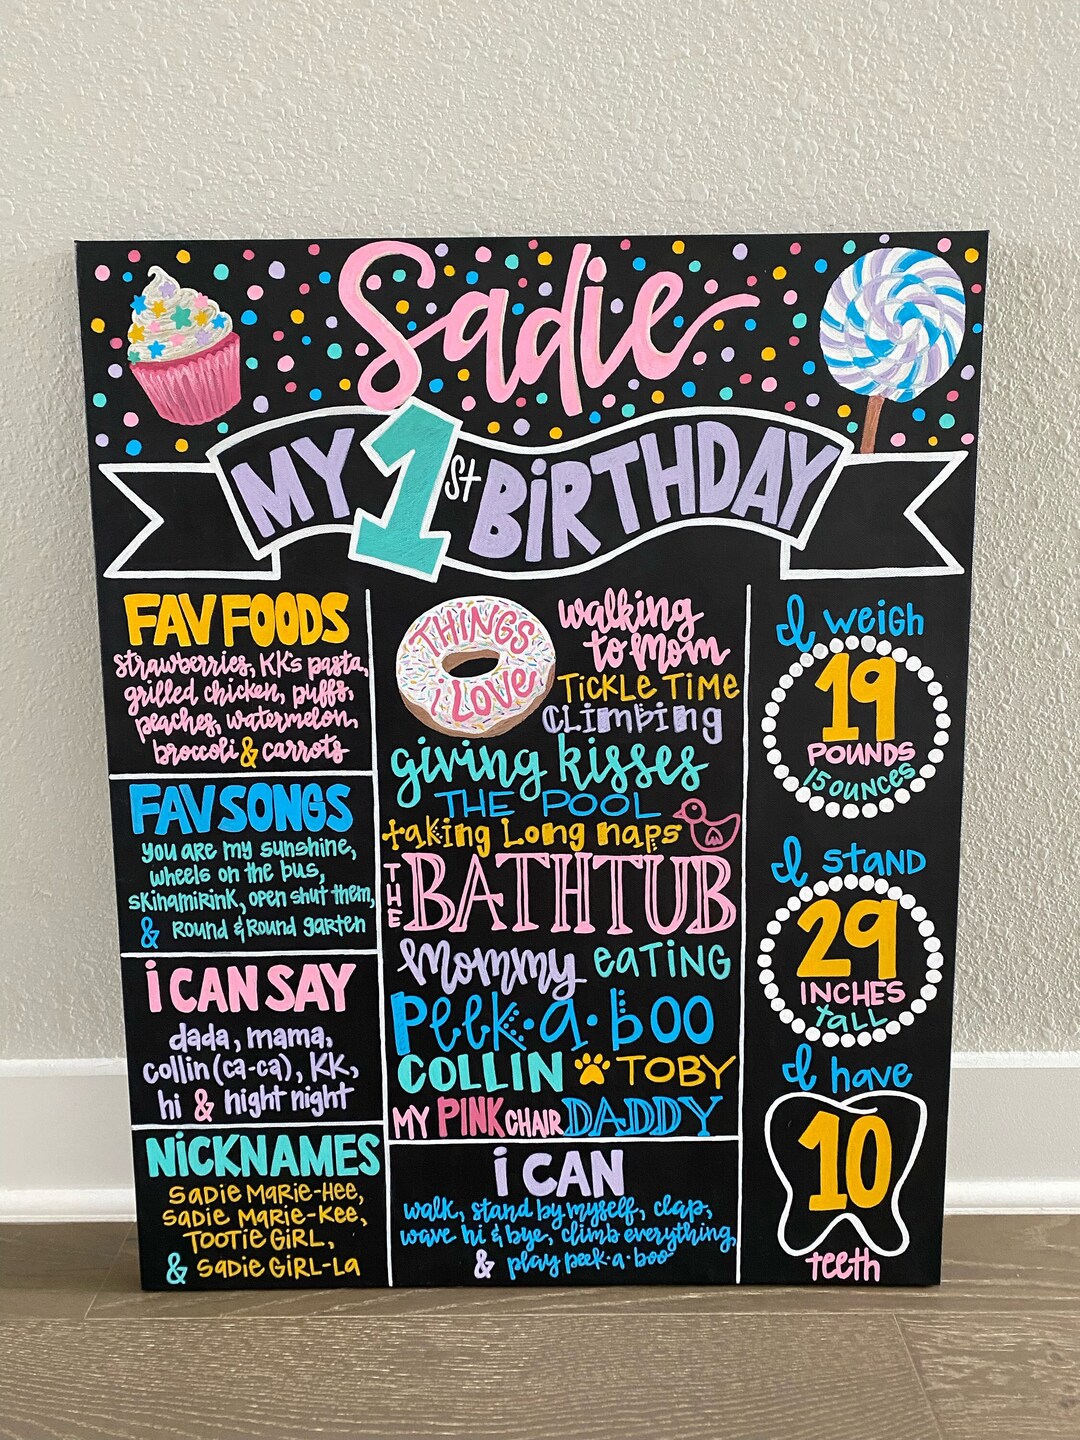 Sadie
MY 1st BiRTHDAY
FAV FOODS
strawberries, KK's pasta,
grilled chicken, puffs,
peaches, watermelon,
broccoli & carrots
FAV SONGS
you are my sunshine,
wheels on the bus,
skinamirink, open shut them,
& Round & Round garten
i CAN SAY
dada, mama,
collin (ca-ca), KK,
hi & night night
NiCKNAMES
Sadie Marie-Hee,
Sadie Marie-Kee,
TOOTiE GiRL,
& Sadie GiRL-La
THiNGS
i LOVE
walking
to Mom
TiCKLE TiME
CLimbing
giving kisses
THE POOL
taking Long naps
THE BATHTUB
Mommy eaTiNG
Peek·a·boo
COLLIN TOBY
MY PINK CHAIR DADDY
i CAN
walk, stand by myself, clap,
wave hi & bye, climb everything,
& play peek·a·boo
I weigh
19
POUNDS
15 OUNCES
I STAND
29
INCHES
taLL
I have
10
teeth